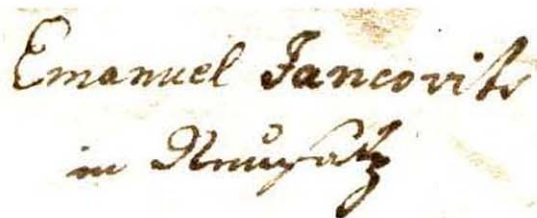 Emanuel Jancovits
in Neusatz